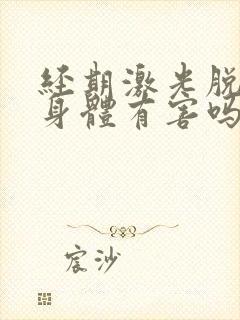 經期激光脫
身體有害嗎
宸沙